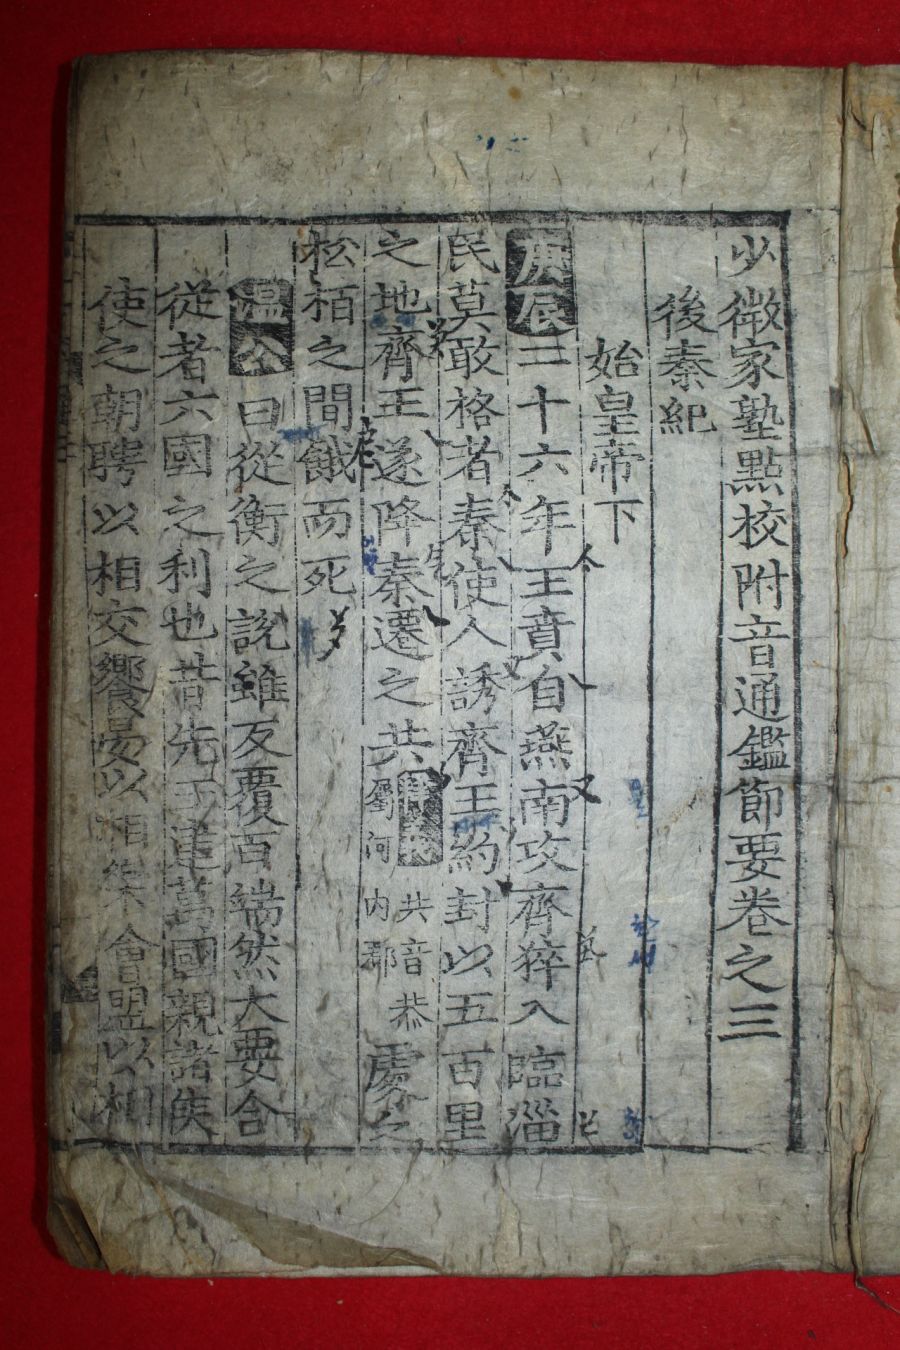 少微家塾點校附音通鑑節要卷之三
後秦紀
始皇帝下
庚辰二十六年王賁自燕南攻齊猝入臨淄
民莫敢格者秦使人誘齊王約封以五百里
之地齊王遂降秦遷之共
共音恭
屬河内郡
處之
松栢之間餓而死
温公曰從衡之說雖反覆百端然大要合
從者六國之利也昔先王建萬國親諸侯
使之朝聘以相交饗宴以相樂會盟以相